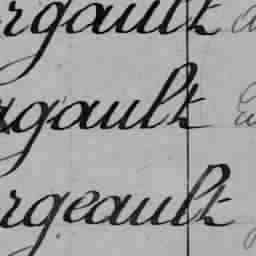 rgault
rgault
rgeault